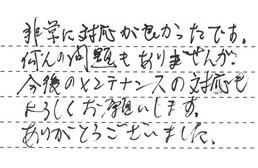 非常に対応が良かったです。
何んの問題もありませんが、
今後のメンテナンスの対応も
よろしくお願いします。
ありがとうございました。